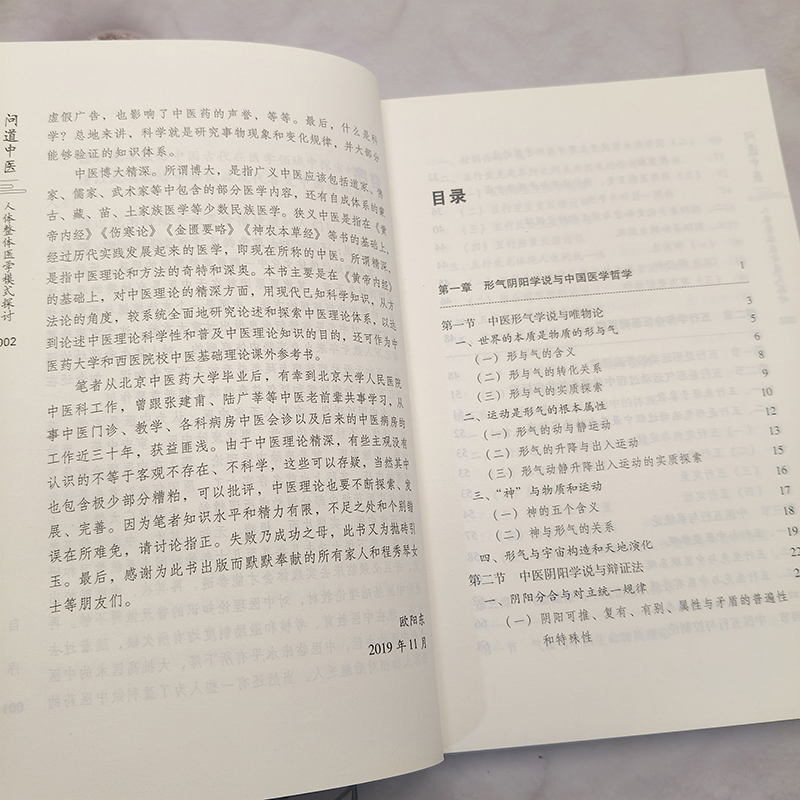 问道中医
人体整体医学模式探讨
002
虚假广告，也影响了中医药的声誉，等等。最后，什么是科
学？总地来讲，科学就是研究事物现象和变化规律，并大部分
能够验证的知识体系。
中医博大精深。所谓博大，是指广义中医应该包括道家、佛
家、儒家、武术家等中包含的部分医学内容，还有自成体系的蒙
古、藏、苗、土家族医学等少数民族医学。狭义中医是指在《黄
帝内经》《伤寒论》《金匮要略》《神农本草经》等书的基础上，
经过历代实践发展起来的医学，即现在所称的中医。所谓精深，
是指中医理论和方法的奇特和深奥。本书主要是在《黄帝内经》
的基础上，对中医理论的精深方面，用现代已知科学知识，从方
法论的角度，较系统全面地研究论述和探索中医理论体系，以达
到论述中医理论科学性和普及中医理论知识的目的，还可作为中
医药大学和西医院校中医基础理论课外参考书。
笔者从北京中医药大学毕业后，有幸到北京大学人民医院
中医科工作，曾跟张建甫、陆广莘等中医老前辈共事学习，从
事中医门诊、教学、各科病房中医会诊以及后来的中医病房的
工作近三十年，获益匪浅。由于中医理论精深，有些主观没有
认识的不等于客观不存在、不科学，这些可以存疑，当然其中
也包含极少部分糟粕，可以批评，中医理论也要不断探索、发
展、完善。因为笔者知识水平和精力有限，不足之处和个别错
误在所难免，请讨论指正。失败乃成功之母，此书又为抛砖引
玉。最后，感谢为此书出版而默默奉献的所有家人和程秀琴女
士等朋友们。
欧阳东
2019 年 11 月
目录
第一章 形气阴阳学说与中国医学哲学 1
第一节 中医形气学说与唯物论 3
一、世界的本质是物质的形与气 5
（一）形与气的含义 6
（二）形与气的转化关系 8
（三）形与气的实质探索 9
二、运动是形气的根本属性 10
（一）形气的动与静运动 12
（二）形气的升降与出入运动 13
（三）形气动静升降出入运动的实质探索 15
三、“神”与物质和运动 16
（一）神的五个含义 17
（二）神与形气的关系 18
四、形气与宇宙构造和天地演化 19
第二节 中医阴阳学说与辩证法 22
一、阴阳分合与对立统一规律
（一）阴阳可推、复有、有别、属性与矛盾的普遍性
和特殊性